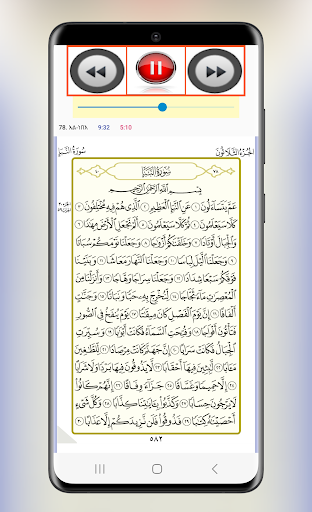 78. አል-ነበእ 9:32 5:10
الجزء الثلاثون سورة النبإ
سورة النبإ
بسم الله الرحمن الرحيم
عَمَّ يَتَسَآءَلُونَ ١ عَنِ ٱلنَّبَإِ ٱلْعَظِيمِ ٢ ٱلَّذِى هُمْ فِيهِ مُخْتَلِفُونَ ٣
كَلَّا سَيَعْلَمُونَ ٤ ثُمَّ كَلَّا سَيَعْلَمُونَ ٥ أَلَمْ نَجْعَلِ ٱلْأَرْضَ مِهَٰدًا ٦
وَٱلْجِبَالَ أَوْتَادًا ٧ وَخَلَقْنَٰكُمْ أَزْوَٰجًا ٨ وَجَعَلْنَا نَوْمَكُمْ سُبَاتًا
٩ وَجَعَلْنَا ٱلَّيْلَ لِبَاسًا ١٠ وَجَعَلْنَا ٱلنَّهَارَ مَعَاشًا ١١ وَبَنَيْنَا
فَوْقَكُمْ سَبْعًا شِدَادًا ١٢ وَجَعَلْنَا سِرَاجًا وَهَّاجًا ١٣ وَأَنزَلْنَا مِنَ
ٱلْمُعْصِرَٰتِ مَآءً ثَجَّاجًا ١٤ لِّنُخْرِجَ بِهِۦ حَبًّا وَنَبَاتًا ١٥ وَجَنَّٰتٍ
أَلْفَافًا ١٦ إِنَّ يَوْمَ ٱلْفَصْلِ كَانَ مِيقَٰتًا ١٧ يَوْمَ يُنفَخُ فِى ٱلصُّورِ
فَتَأْتُونَ أَفْوَاجًا ١٨ وَفُتِحَتِ ٱلسَّمَآءُ فَكَانَتْ أَبْوَٰبًا ١٩ وَسُيِّرَتِ
ٱلْجِبَالُ فَكَانَتْ سَرَابًا ٢٠ إِنَّ جَهَنَّمَ كَانَتْ مِرْصَادًا ٢١ لِّلطَّٰغِينَ
مَـَٔابًا ٢٢ لَّٰبِثِينَ فِيهَآ أَحْقَابًا ٢٣ لَّا يَذُوقُونَ فِيهَا بَرْدًا وَلَا شَرَابًا
٢٤ إِلَّا حَمِيمًا وَغَسَّاقًا ٢٥ جَزَآءً وِفَاقًا ٢٦ إِنَّهُمْ كَانُوا۟
لَا يَرْجُونَ حِسَابًا ٢٧ وَكَذَّبُوا۟ بِـَٔايَٰتِنَا كِذَّابًا ٢٨ وَكُلَّ شَىْءٍ
أَحْصَيْنَٰهُ كِتَٰبًا ٢٩ فَذُوقُوا۟ فَلَن نَّزِيدَكُمْ إِلَّا عَذَابًا ٣٠
٥٨٢